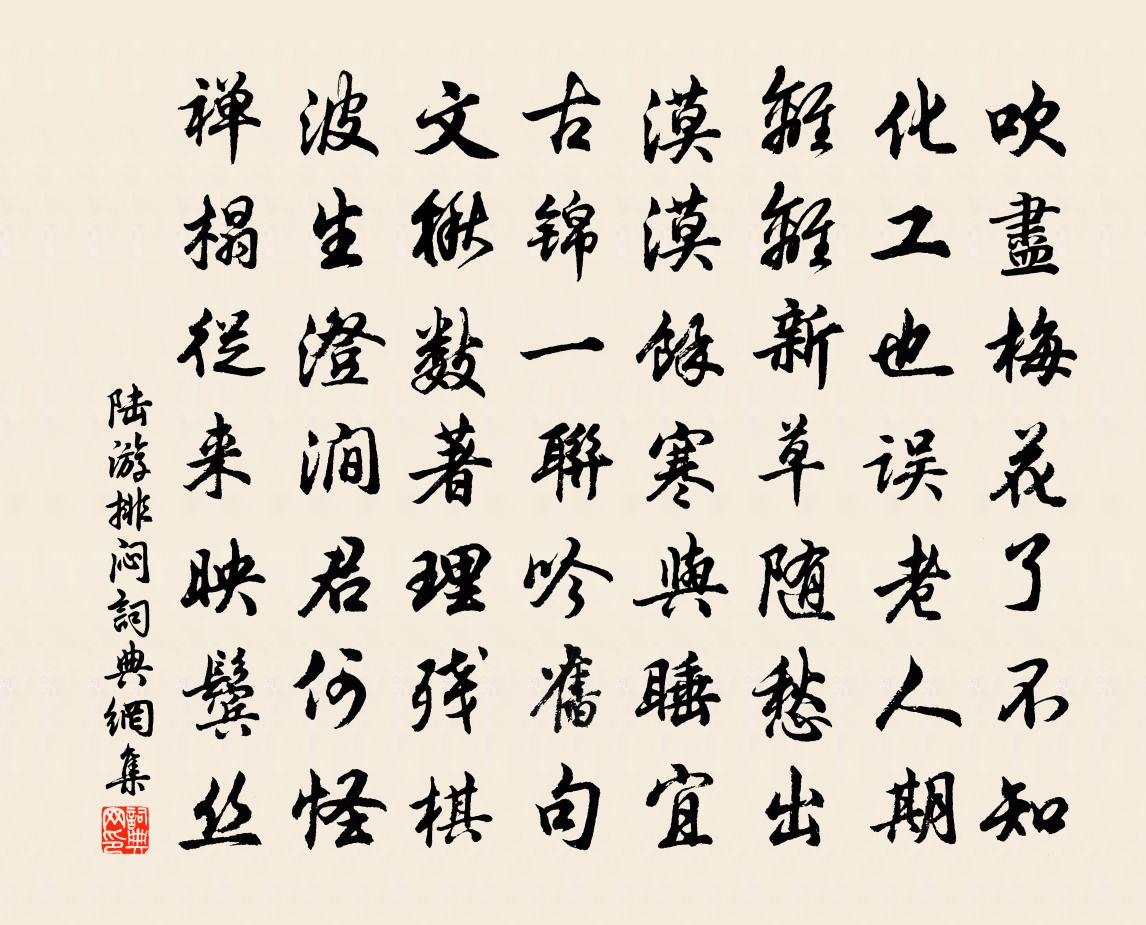 吹盡梅花了不知
化工也误老人期
離離新草随愁出
漠漠餘寒與睡宜
古锦一聯吟舊句
文楸数著理残棋
波生澄涧君何怪
禅榻従来映鬢丝
陆游排闷詞典網集
詞典网印